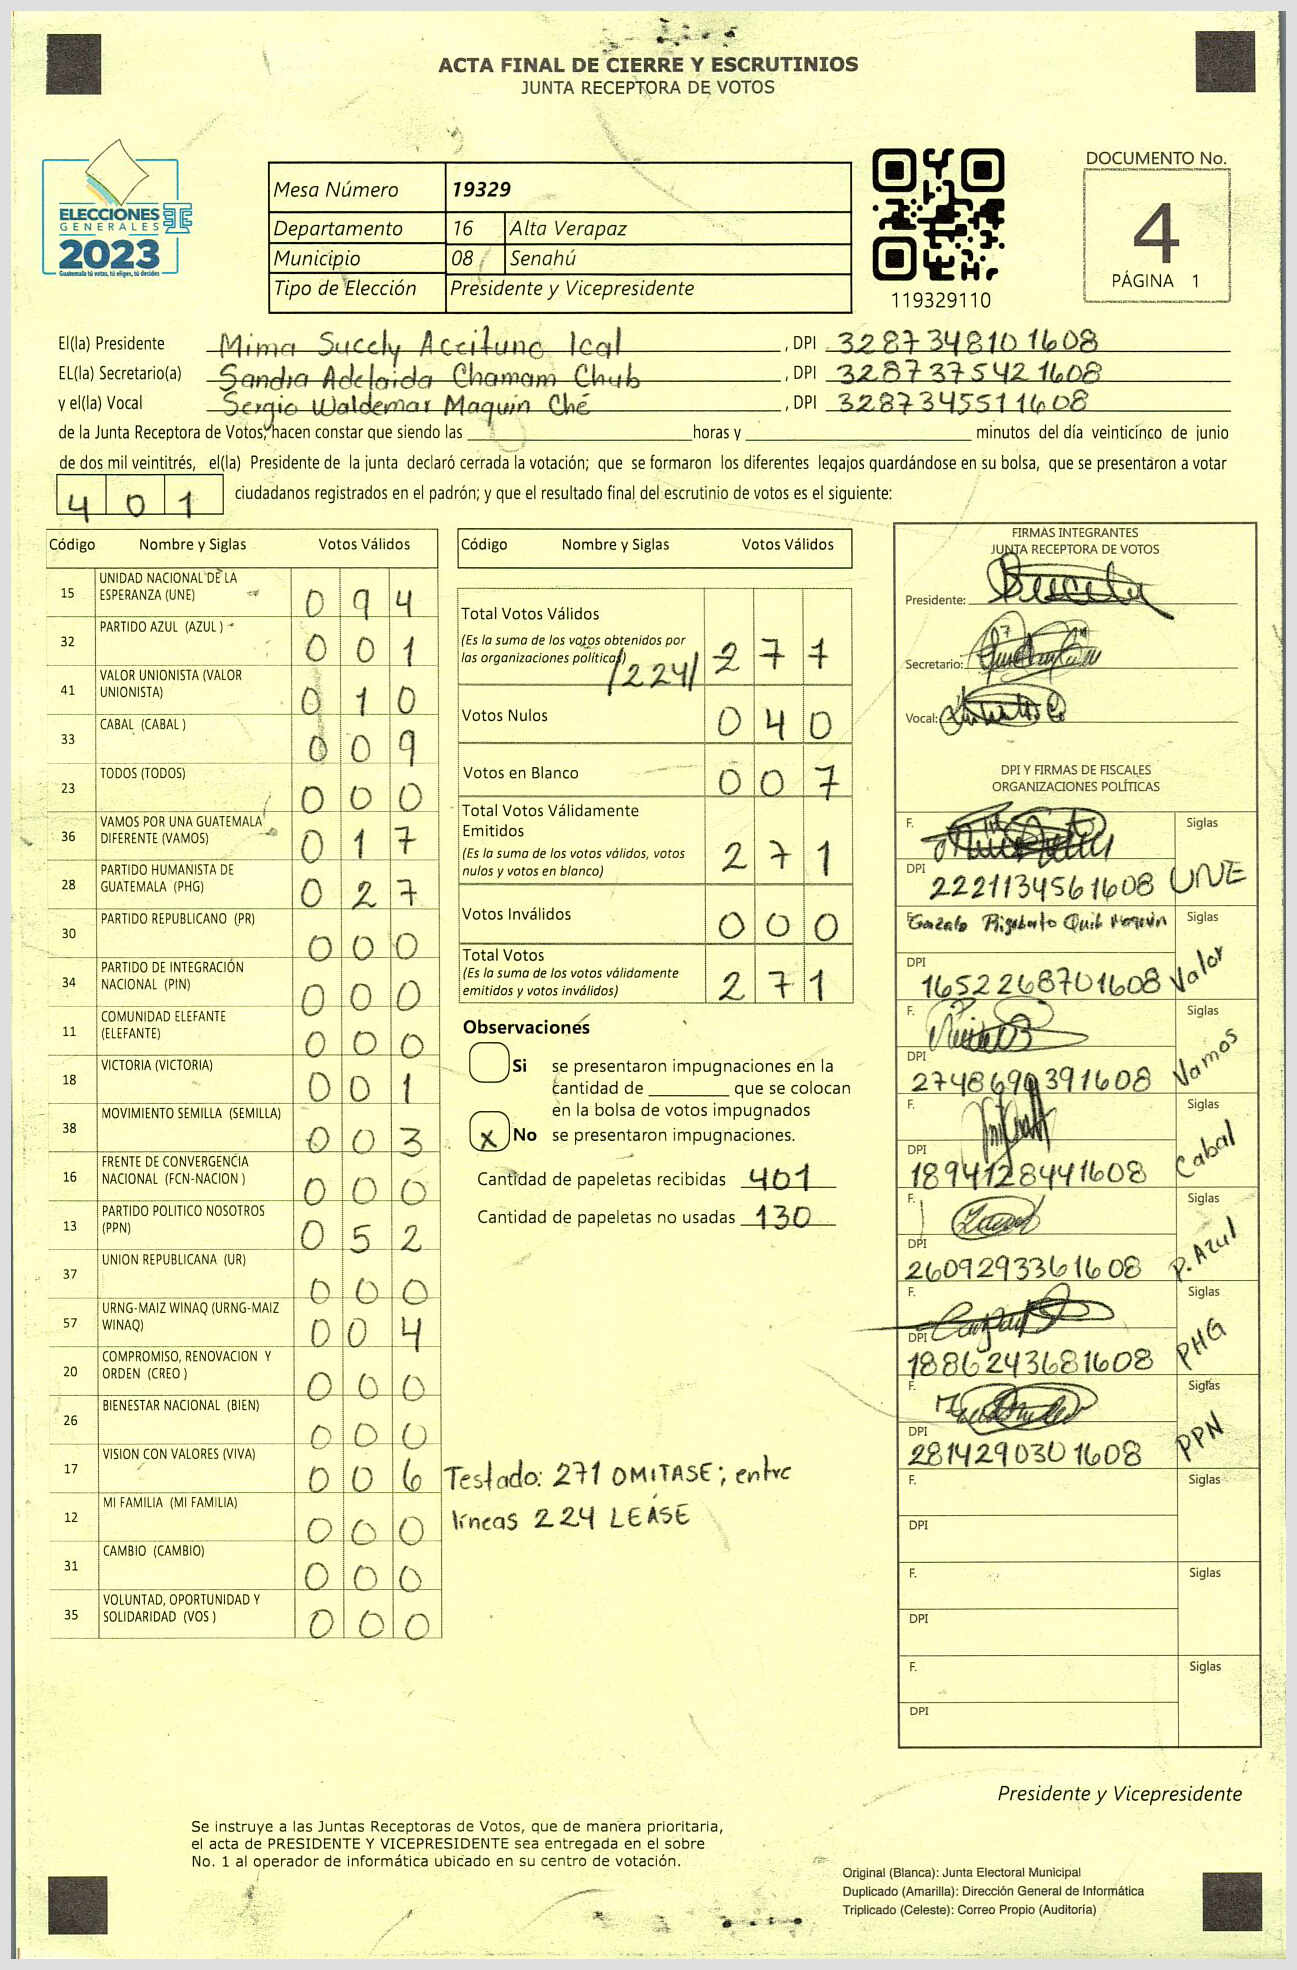 ACTA FINAL DE CIERRE Y ESCRUTINIOS
JUNTA RECEPTORA DE VOTOS
ELECCIONES
GENERALES
2023
Guatemala tú votas, tú eliges, tú decides
Mesa Número 19329
Departamento 16 Alta Verapaz
Municipio 08 Senahú
Tipo de Elección Presidente y Vicepresidente
119329110
DOCUMENTO No.
4
PÁGINA 1
El(la) Presidente Mima Succly Aceituno Ical , DPI 3287348101608
EL(la) Secretario(a) Sandra Adelaida Chamam Chub , DPI 3287375421608
y el(la) Vocal Sergio Waldemar Maquin Ché , DPI 3287345511608
de la Junta Receptora de Votos, hacen constar que siendo las horas y minutos del día veinticinco de junio
de dos mil veintitrés, el(la) Presidente de la junta declaró cerrada la votación; que se formaron los diferentes legajos guardándose en su bolsa, que se presentaron a votar
401 ciudadanos registrados en el padrón; y que el resultado final del escrutinio de votos es el siguiente:
Código Nombre y Siglas Votos Válidos
15 UNIDAD NACIONAL DE LA ESPERANZA (UNE) 094
32 PARTIDO AZUL (AZUL ) 001
41 VALOR UNIONISTA (VALOR UNIONISTA) 010
33 CABAL (CABAL ) 009
23 TODOS (TODOS) 000
36 VAMOS POR UNA GUATEMALA DIFERENTE (VAMOS) 017
28 PARTIDO HUMANISTA DE GUATEMALA (PHG) 027
30 PARTIDO REPUBLICANO (PR) 000
34 PARTIDO DE INTEGRACIÓN NACIONAL (PIN) 000
11 COMUNIDAD ELEFANTE (ELEFANTE) 000
18 VICTORIA (VICTORIA) 001
38 MOVIMIENTO SEMILLA (SEMILLA) 003
16 FRENTE DE CONVERGENCIA NACIONAL (FCN-NACION ) 000
13 PARTIDO POLITICO NOSOTROS (PPN) 052
37 UNION REPUBLICANA (UR) 000
57 URNG-MAIZ WINAQ (URNG-MAIZ WINAQ) 004
20 COMPROMISO, RENOVACION Y ORDEN (CREO ) 000
26 BIENESTAR NACIONAL (BIEN) 000
17 VISION CON VALORES (VIVA) 006
12 MI FAMILIA (MI FAMILIA) 000
31 CAMBIO (CAMBIO) 000
35 VOLUNTAD, OPORTUNIDAD Y SOLIDARIDAD (VOS ) 000
Código Nombre y Siglas Votos Válidos
Total Votos Válidos
(Es la suma de los votos obtenidos por
las organizaciones políticas) /224/ 271
Votos Nulos 040
Votos en Blanco 007
Total Votos Válidamente
Emitidos
(Es la suma de los votos válidos, votos
nulos y votos en blanco) 271
Votos Inválidos 000
Total Votos
(Es la suma de los votos válidamente
emitidos y votos inválidos) 271
Observaciones
Si se presentaron impugnaciones en la
cantidad de que se colocan
en la bolsa de votos impugnados
x No se presentaron impugnaciones.
Cantidad de papeletas recibidas 401
Cantidad de papeletas no usadas 130
Testado: 271 OMITASE; entre
líneas 224 LEASE
FIRMAS INTEGRANTES
JUNTA RECEPTORA DE VOTOS
Presidente:
Secretario:
Vocal:
DPI Y FIRMAS DE FISCALES
ORGANIZACIONES POLÍTICAS
F. Siglas
DPI 2221134561608 UNE
F. Gonzalo Rigoberto Quib Maquin Siglas
DPI 1652268701608 Valor
F. Siglas
DPI 2748690391608 Vamos
F. Siglas
DPI 1894128441608 Cabal
F. Siglas
DPI 2609293361608 P. Azul
F. Siglas
DPI 1886243681608 PHG
F. Siglas
DPI 2814290301608 PPN
F. Siglas
DPI
F. Siglas
DPI
F. Siglas
DPI
Presidente y Vicepresidente
Se instruye a las Juntas Receptoras de Votos, que de manera prioritaria,
el acta de PRESIDENTE Y VICEPRESIDENTE sea entregada en el sobre
No. 1 al operador de informática ubicado en su centro de votación.
Original (Blanca): Junta Electoral Municipal
Duplicado (Amarilla): Dirección General de Informática
Triplicado (Celeste): Correo Propio (Auditoría)